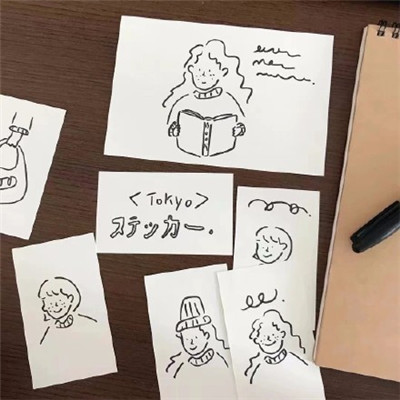 <Tokyo>
ステッカー.